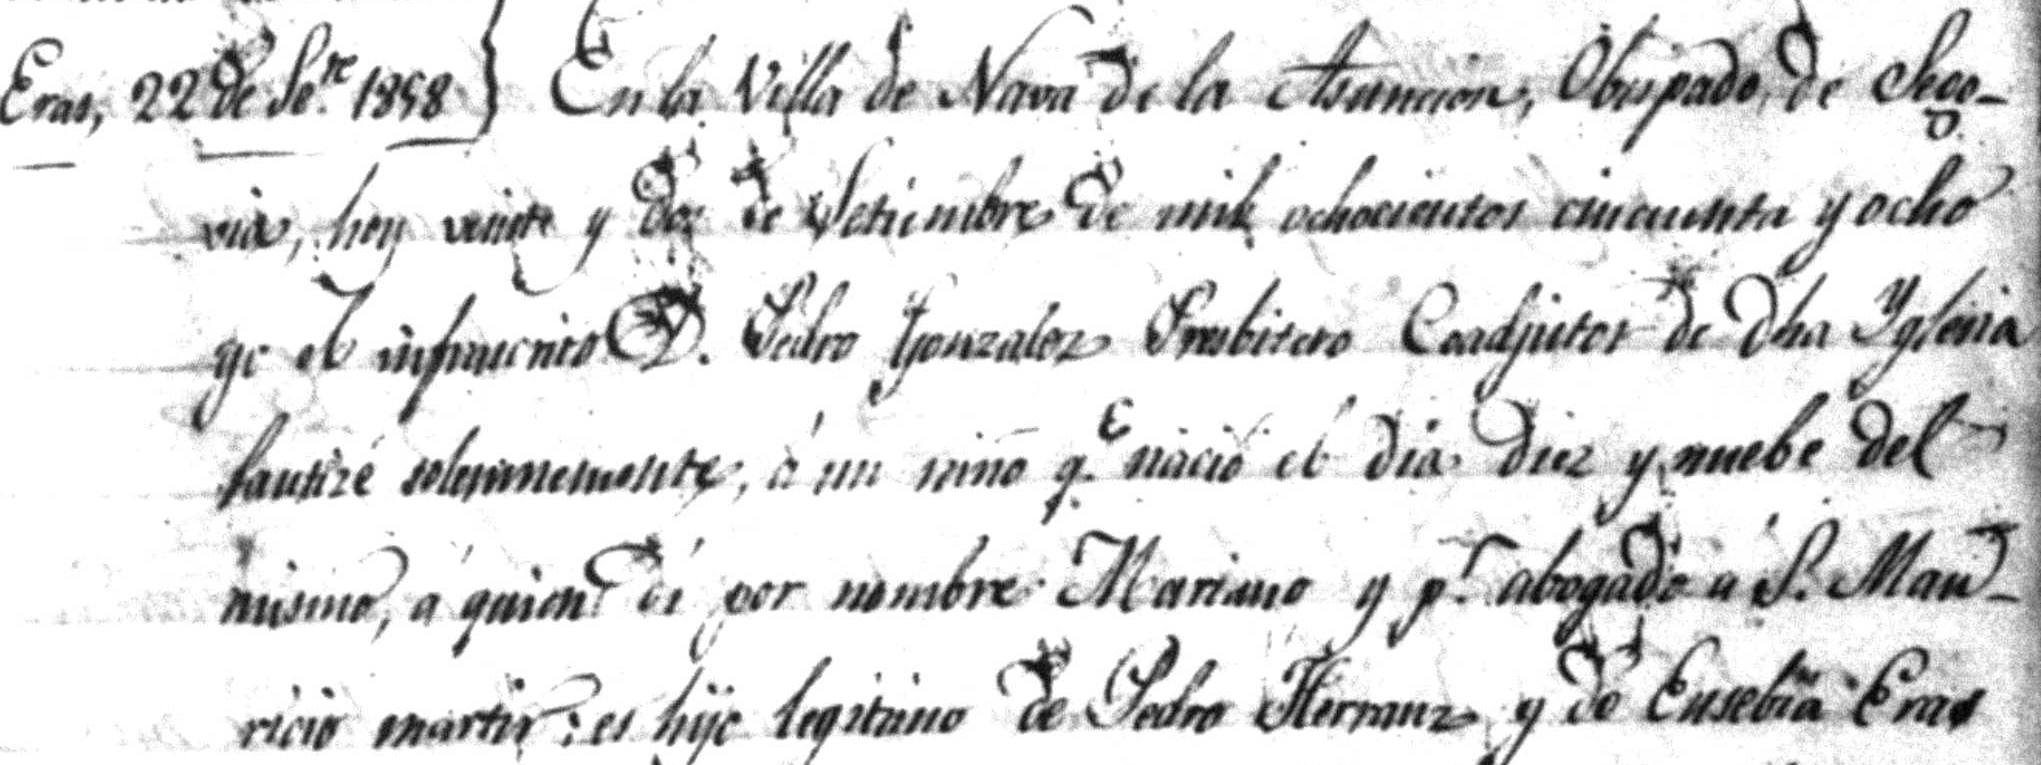 Eras, 22 de Se.re 1858} En la Villa de Nava de la Asuncion, Obispado, de Sego-
via, hoy veinte y dos de Setiembre de mil ochocientos cincuenta y ocho
yo el infrascrito D. Pedro Gonzalez Presbitero Coadjutor de dha Yglesia
bautizé solemnemente, á un niño q.e nació el dia diez y nuebe del
mismo, á quien dí por nombre Mariano y p.r abogado á S. Mau-
ricio martir: es hijo legitimo de Pedro Herranz y de Eusebia Eras